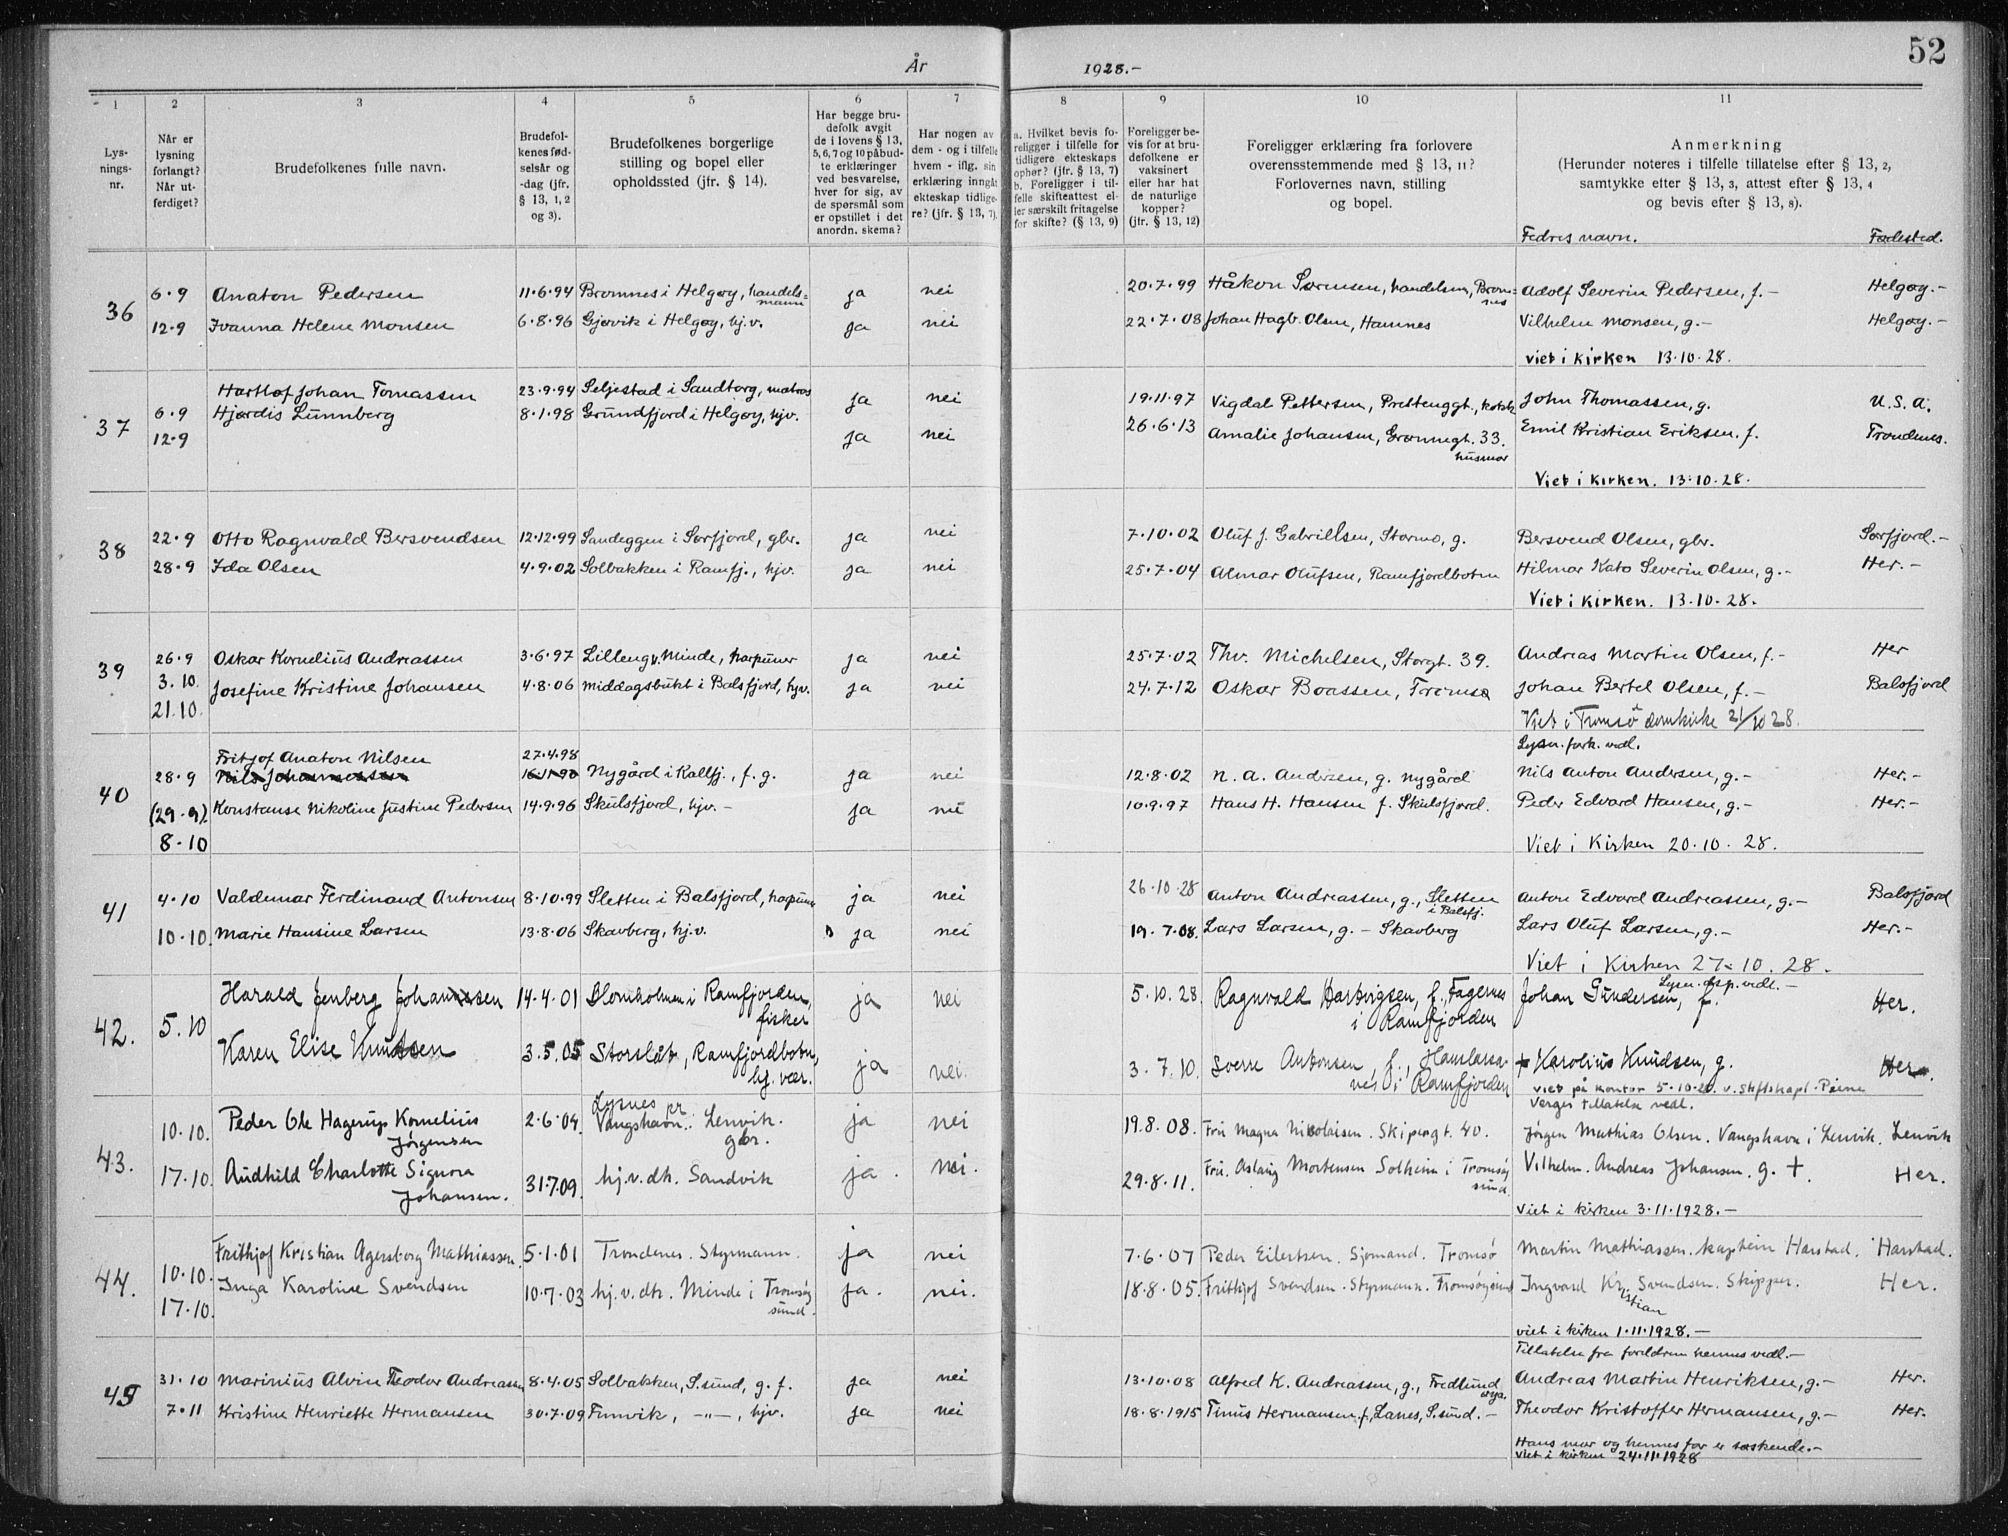 52
År 1928.-
1 2 3 4 5 6 7 8 9 10 11
Lys-
nings-
nr.
Når er
lysning
forlangt?
Når ut-
ferdiget?
Brudefolkenes fulle navn.
Brudefol-
kenes fød-
selsår og
-dag (jfr.
§ 13, 1, 2
og 3).
Brudefolkenes borgerlige
stilling og bopel eller
opholdssted (jfr. § 14).
Har begge bru-
defolk avgit
de i lovens § 13,
5, 6, 7 og 10 påbud-
te erklæringer
ved besvarelse,
hver for sig, av
de spørsmål som
er opstillet i det
anordn. skema?
Har nogen av
dem - og i tilfelle
hvem - iflg. sin
erklæring inngåt
ekteskap tidlige-
re? (jfr. § 13, 7).
a. Hvilket bevis fo-
religger i tilfelle for
tidligere ekteskaps
ophør? (jfr. § 13, 7)
b. Foreligger i til-
felle skifteattest el-
ler særskilt fritagelse
for skifte? (§ 13, 9)
Foreligger be-
vis for at bru-
defolkene er
vaksinert
eller har hat
de naturlige
kopper?
(jfr. § 13, 12)
Foreligger erklæring fra forlovere
overensstemmende med § 13, 11?
Forlovernes navn, stilling
og bopel.
Anmerkning
(Herunder noteres i tilfelle tillatelse efter § 13, 2,
samtykke efter § 13, 3, attest efter § 13, 4
og bevis efter § 13, 8).
Fedres navn. Fødested.
36 6.9 Anaton Pedersen 11.6.94 Bromnes i Helgøy, handels=
mann ja nei 20.7.99 Håkon Sørensen, handelsm, Brom=
nes Adolf Severin Pedersen, f.- Helgøy.-
12.9 Ivanna Helene Monsen 6.8.96 Gjøvik i Helgøy, hj.v. ja nei 22.7.08 Johan Hagb. Olsen, Hamnes Vilhelm Monsen, g.- Helgøy.-
viet i kirken 13.10.28.
37 Hartlof Johan Tomassen 23.9.94 Seljestad i Sandtorg, matros ja nei 19.11.97 Vigdal Pettersen, Prestenggt., John Thomassen, g. U.S.A.
6.9 Hjørdis Lunnberg 8.1.98 Grundfjord i Helgøy, hjv. 26.6.13 Amalie Johansen, Grønnegt. 33.
husmor Emil Kristian Eriksen. f. Trondenes.
12.9 ja nei
Viet i kirken. 13.10.28.
38 22.9 Otto Ragnvald Bersvendsen 12.12.99 Sandeggen i Sørfjord, gbr. ja nei 7.10.02 Oluf J. Gabrillsen, Stormo, g. Bersvend Olsen, gbr. Sørfjord.-
28.9 Ida Olsen 4.9.02 Solbakken i Ramfj., hjv. ja nei 25.7.04 Almar Olufsen, Ramfjordbotn Hilmar Kato Severin Olsen, g.- Her.-
Viet i kirken. 13.10.28.
39 26.9 Oskar Kornelius Andreassen 3.6.97 Lilleng v. Minde, harpuner ja nei 25.7.02 Thv. Michelsen, Storgt. 39. Andreas Martin Olsen, f.- Her
3.10. Josefine Kristine Johansen 4.8.06 Middagsbukt i Balsfjord, hjv. ja nei 24.7.12 Oskar Boassen, Tromsø Johan Bertel Olsen, f.- Balsfjord
21.10. Viet i Tromsø domkirke 21/10 28.
Lysn. fork. vedl.
40 Fritjof Anaton Nilsen 27.4.98
28.9 Nils Johannessen 16.11.90 Nygård i Kallfj., f.g. ja nei 12.8.02 N. A. Andersen, g. Nygård Nils Anton Andersen, g.- Her.-
(29.9). Konstanse Nikoline Justine Pedersen 14.9.96 Skulsfjord, hjv.- ja nei 10.9.97 Hans H. Hansen f. Skulsfjord. Peder Edvard Hansen, g.- Her.-
8.10 Viet i Kirken 20.10.28.
41 4.10 Valdemar Ferdinand Antonsen 8.10.99 Sletten i Balsfjord, harpuner ja nei 26.10.28 Anton Andreassen, g., Sletten
i Balsfj. Anton Edvard Andreassen, g.- Balsfjord
10.10. Marie Hansine Larsen 13.8.06 Skavberg, hj.v. ja nei 19.7.08. Lars Larsen, g.- Skavberg Lars Oluf Larsen, g.- Her.-
Viet i Kirken 27-10.28.
Lysn. disp. vedl.-
42. 5.10 Harald Jenberg Johannessen 14.4.01 Blomholmen i Ramfjorden,
fisker ja nei 5.10.28. Ragnvald Hartvigsen, f., Fagernes
i Ramfjorden Johan Gundersen, f. Her.
Karen Elise Knudsen 3.5.05 Storslåt, Ramfjordbotn,
hj. vær. ja nei. 3.7.10. Sverre Antonsen, f., Hamlarsa-
nes i Ramfjorden + Karolius Knudsen, g. Her.
viet på kontor 5.10.28. v. Stiftskapl. Peine
Verges tillatelse vedl.
43. 10.10. Peder Ole Hagerup Kornelius
Jørgensen 2.6.04. Lysnes pr.
Vangshavn. Lenvik.
gbr. ja nei 19.8.08. Fru Magna Nikolaisen. Skippergt. 40. Jørgen Mathias Olsen. Vangshavn i Lenvik. Lenvik
17.10. Audhild Charlotte Signora
Johansen. 31.7.09. hj.v.dtr. Sandvik ja. nei. 29.8.11. Fru. Aslaug Mortensen Solheim i Tromsøy
sund. Vilhelm. Andreas Johansen. g. +. Her.
Viet i kirken 3.11.1928.-
44. 10.10. Frithjof Kristian Agersborg Mathiassen 5.1.01 Trondenes. Styrmann. ja nei 7.6.07 Peder Eilertsen. Sjømand. Tromsø Martin Mathiassen. kaptein Harstad. Harstad.
17.10. Inga Karoline Svendsen 10.7.03 hj.v.dtr. Minde i Tromsøy
sund. ja. nei. 18.8.05. Frithjof Svendsen. Styrmann. Tromsøysund Ingvard Kr. Svendsen. Skipper. Her.
istian
viet i kirken 1.11.1928.-
Tillatelse fra foreldrene hennes vedl.-
45 31.10 Marinius Alvin Theodor Andreassen 8.4.05 Solbakken, S.sund, g.f. ja nei 13.10.08 Alfred K. Andreassen, g., Fredlund Andreas Martin Henriksen, g.- Her.
7.11 Kristine Henriette Hermansen 30.7.09 Finnvik, -"-, hjv. ja nei 18.8.1915 Tinus Hermansen, f, Lanes, S.sund.- Theodor Kristoffer Hermansen, g.- Her.
Hans mor og hennes far er søskende.-
Viet i kirken 24.11.1928